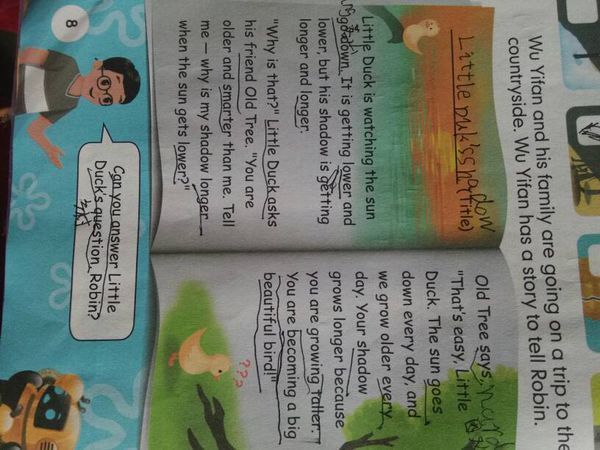 Wu Yifan and his family are going on a trip to the
countryside. Wu Yifan has a story to tell Robin.
Little Duk'sshadow (Title)
Little Duck is watching the sun
go down. It is getting lower and
lower, but his shadow is getting
longer and longer.
"Why is that?" Little Duck asks
his friend Old Tree. "You are
older and smarter than me. Tell
me — why is my shadow longer
when the sun gets lower?"
Old Tree says,
"That's easy, Little
Duck. The sun goes
down every day, and
we grow older every
day. Your shadow
grows longer because
you are growing taller.
You are becoming a big
beautiful bird!"
???
Can you answer Little
Duck's question, Robin?
8